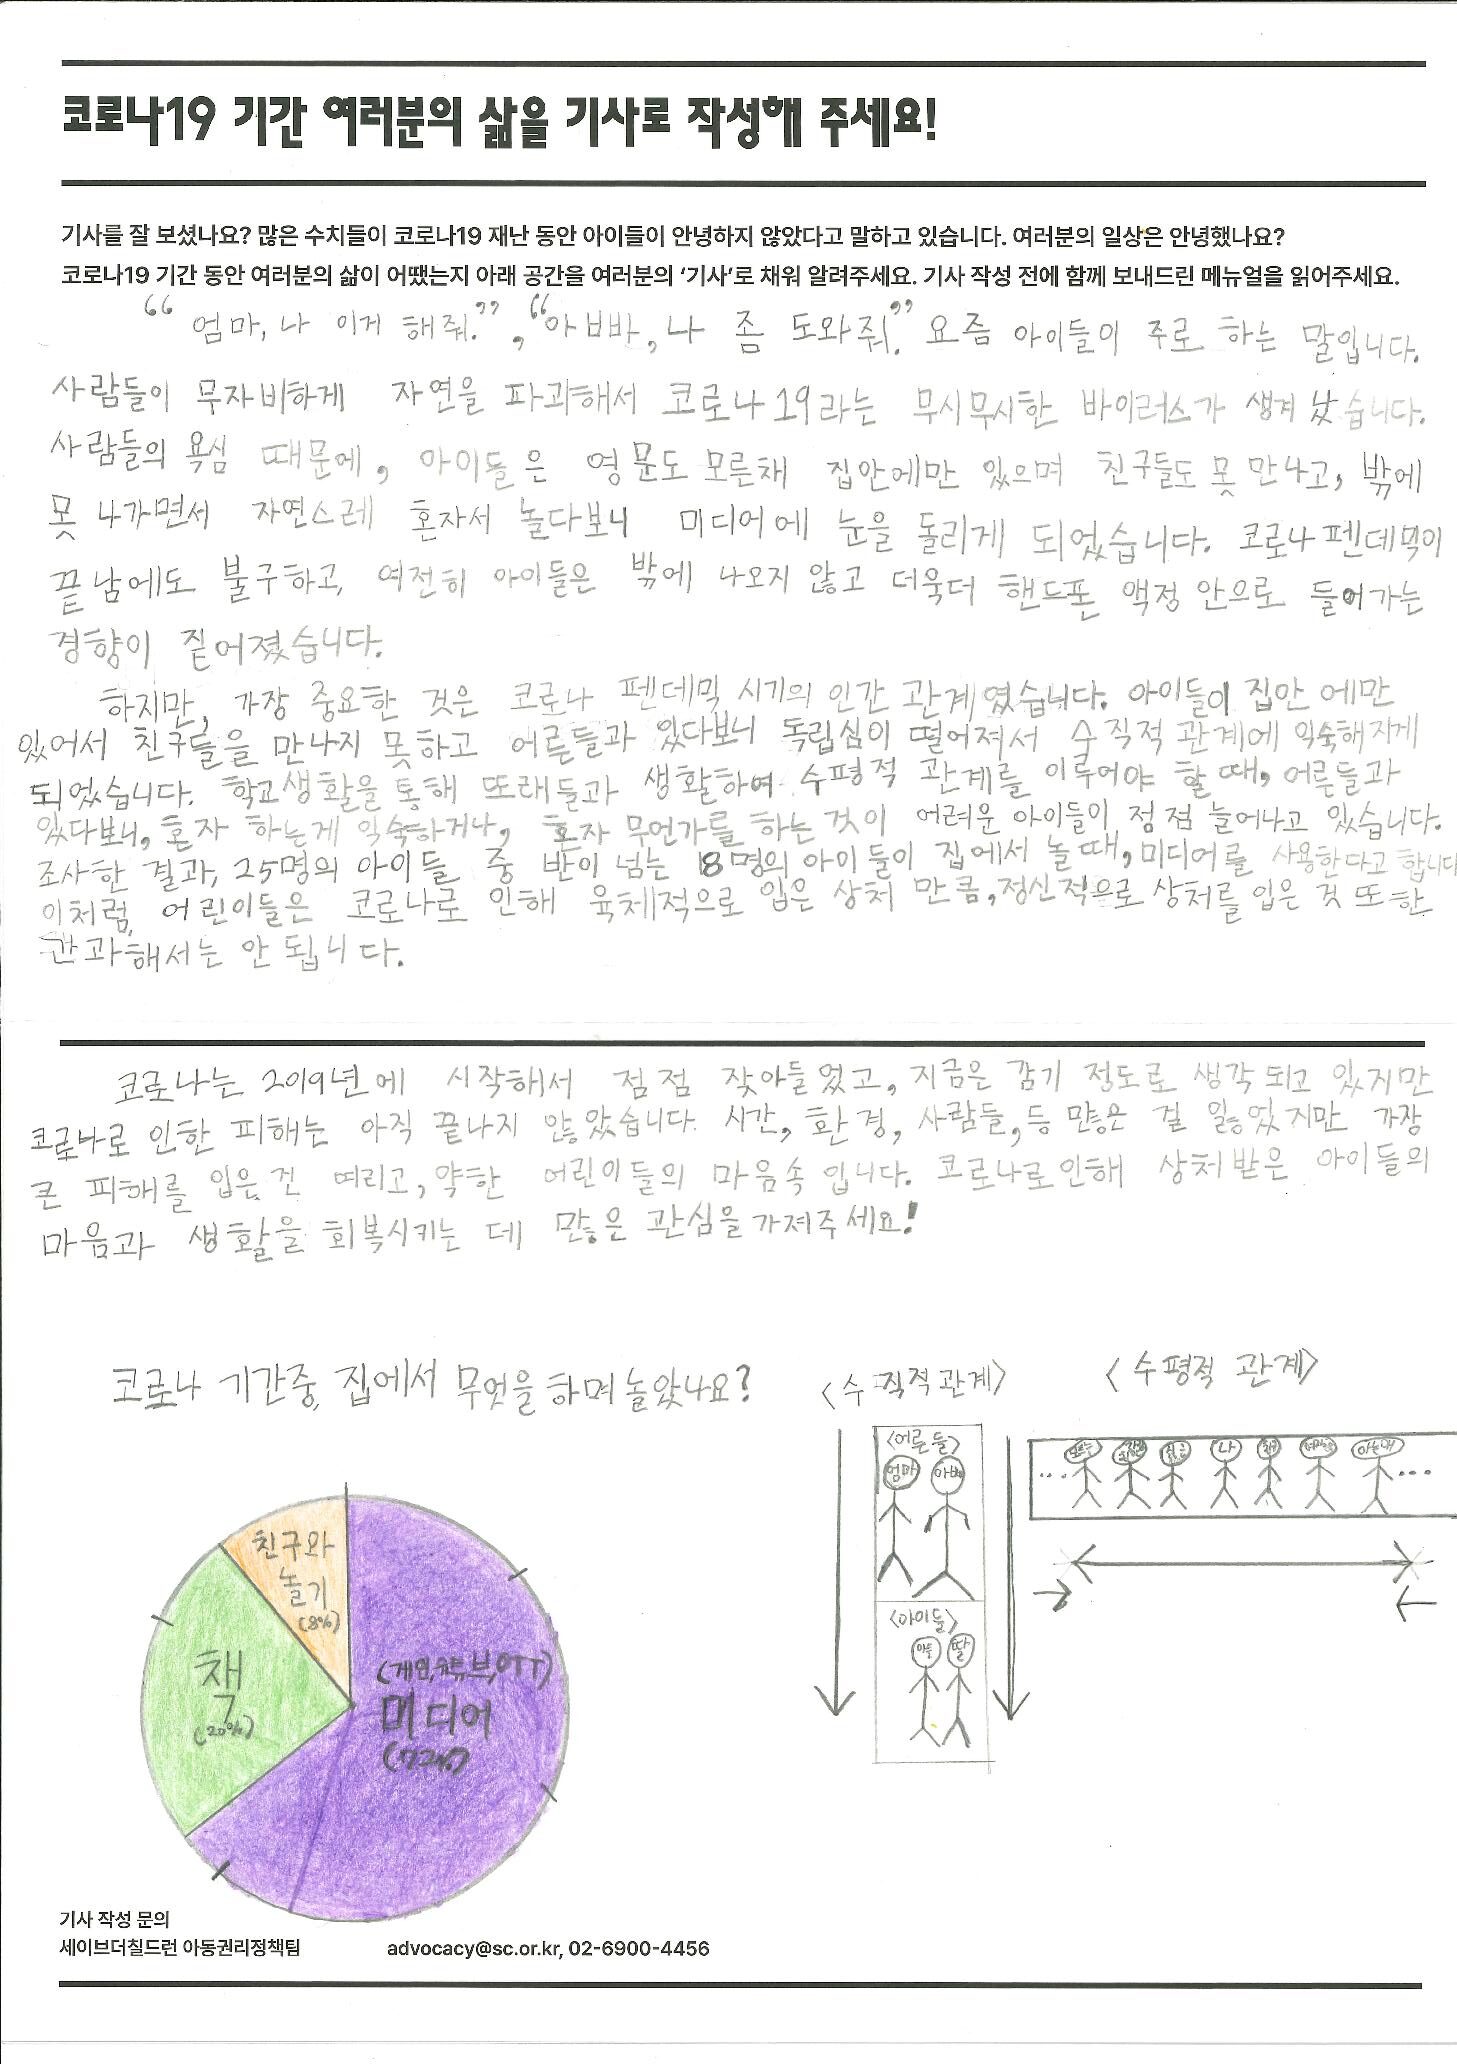 코로나19 기간 여러분의 삶을 기사로 작성해 주세요!
기사를 잘 보셨나요? 많은 수치들이 코로나19 재난 동안 아이들이 안녕하지 않았다고 말하고 있습니다. 여러분의 일상은 안녕했나요?
코로나19 기간 동안 여러분의 삶이 어땠는지 아래 공간을 여러분의 ‘기사’로 채워 알려주세요. 기사 작성 전에 함께 보내드린 메뉴얼을 읽어주세요.
“엄마, 나 이게 해줘.”, “아빠, 나 좀 도와줘.” 요즘 아이들이 주로 하는 말입니다.
사람들이 무자비하게 자연을 파괴해서 코로나19라는 무시무시한 바이러스가 생겨났습니다.
사람들의 욕심 때문에, 아이들은 영문도 모른채 집안에만 있으며 친구들도 못 만나고, 밖에
못 나가면서 자연스레 혼자서 놀다보니 미디어에 눈을 돌리게 되었습니다. 코로나 펜데믹이
끝남에도 불구하고, 여전히 아이들은 밖에 나오지 않고 더욱더 핸드폰 액정 안으로 들어가는
경향이 짙어졌습니다.
하지만, 가장 중요한 것은 코로나 펜데믹 시기의 인간 관계였습니다. 아이들이 집안에만
있어서 친구들을 만나지 못하고 어른들과 있다보니 독립심이 떨어져서 수직적 관계에 익숙해지게
되었습니다. 학교생활을 통해 또래들과 생활하여 수평적 관계를 이루어야 할 때, 어른들과
있다보니, 혼자 하는게 익숙하거나, 혼자 무언가를 하는 것이 어려운 아이들이 점점 늘어나고 있습니다.
조사한 결과, 25명의 아이들 중 반이 넘는 18명의 아이들이 집에서 놀 때, 미디어를 사용한다고 합니다
이처럼, 어린이들은 코로나로 인해 육체적으로 입은 상처 만큼, 정신적으로 상처를 입은 것 또한
간과해서는 안 됩니다.
코로나는 2019년에 시작해서 점점 잦아들었고, 지금은 감기 정도로 생각되고 있지만
코로나로 인한 피해는 아직 끝나지 않았습니다. 시간, 환경, 사람들, 등 많은 걸 잃었지만 가장
큰 피해를 입은 건 여리고, 약한 어린이들의 마음속입니다. 코로나로인해 상처받은 아이들의
마음과 생활을 회복시키는 데 많은 관심을 가져주세요!
코로나 기간중, 집에서 무엇을 하며 놀았나요?
<수직적 관계>
<수평적 관계>
<어른들>
엄마 아빠
<아이들>
아들 딸
나 친구
친구와
놀기
(8%)
책
(20%)
(게임, 유튜브, OTT)
미디어
(72%)
기사 작성 문의
세이브더칠드런 아동권리정책팀 advocacy@sc.or.kr, 02-6900-4456